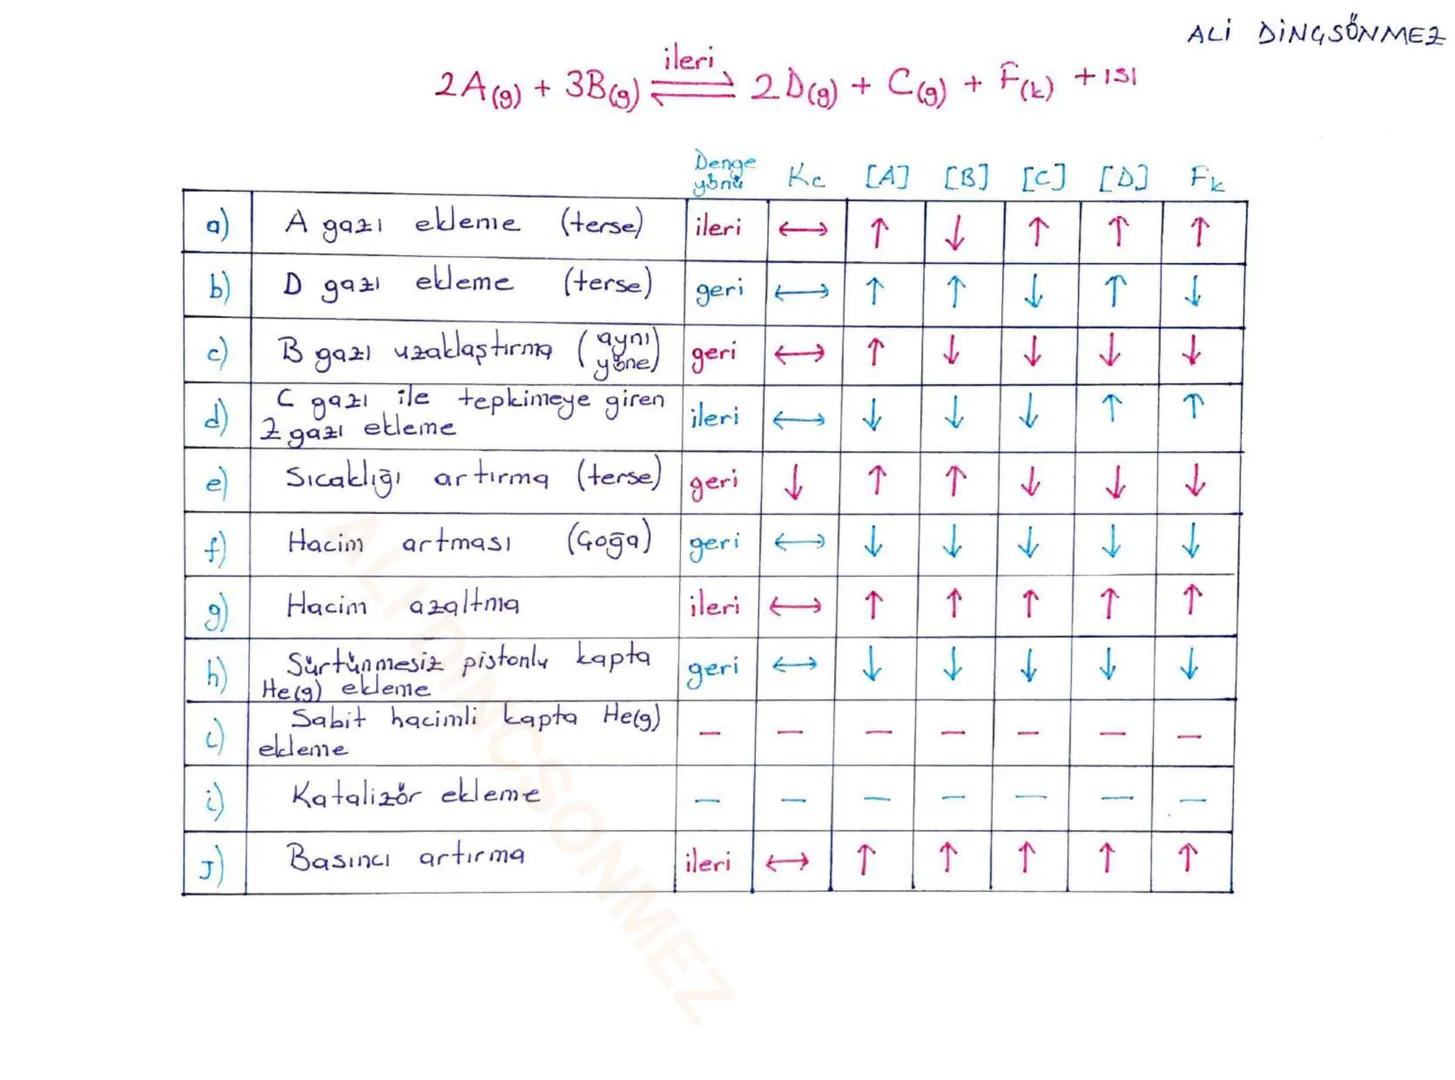 ALİ DİNÇSÖNMEZ
ileri
2A(g) + 3B(g) ⇌ 2D(g) + C(g) + F(k) + ısı
Denge yönü Kc [A] [B] [C] [D] Fk
a) A gazı ekleme (terse) ileri ↔ ↑ ↓ ↑ ↑ ↑
b) D gazı ekleme (terse) geri ↔ ↑ ↑ ↓ ↑ ↓
c) B gazı uzaklaştırma (aynı yöne) geri ↔ ↑ ↓ ↓ ↓ ↓
d) C gazı ile tepkimeye giren
Z gazı ekleme ileri ↔ ↓ ↓ ↓ ↑ ↑
e) Sıcaklığı artırma (terse) geri ↓ ↑ ↑ ↓ ↓ ↓
f) Hacim artması (Çoğa) geri ↔ ↓ ↓ ↓ ↓ ↓
g) Hacim azaltma ileri ↔ ↑ ↑ ↑ ↑ ↑
h) Sürtünmesiz pistonlu kapta
He(g) ekleme geri ↔ ↓ ↓ ↓ ↓ ↓
ı) Sabit hacimli kapta He(g)
ekleme – – – – – – –
i) Katalizör ekleme – – – – – – –
J) Basıncı artırma ileri ↔ ↑ ↑ ↑ ↑ ↑
ALİ DİNÇSÖNMEZ